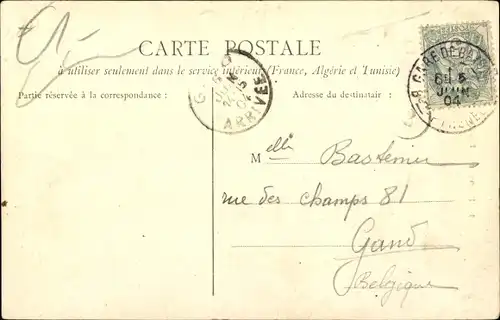 CARTE POSTALE
à utiliser seulement dans le service intérieur (France, Algérie et Tunisie)
Partie réservée à la correspondance :
Adresse du destinataire :
ARRIVÉE
GARE DE
5
JUIN
04
Melle Bastenier
rue des champs 81
Gand
Belgique